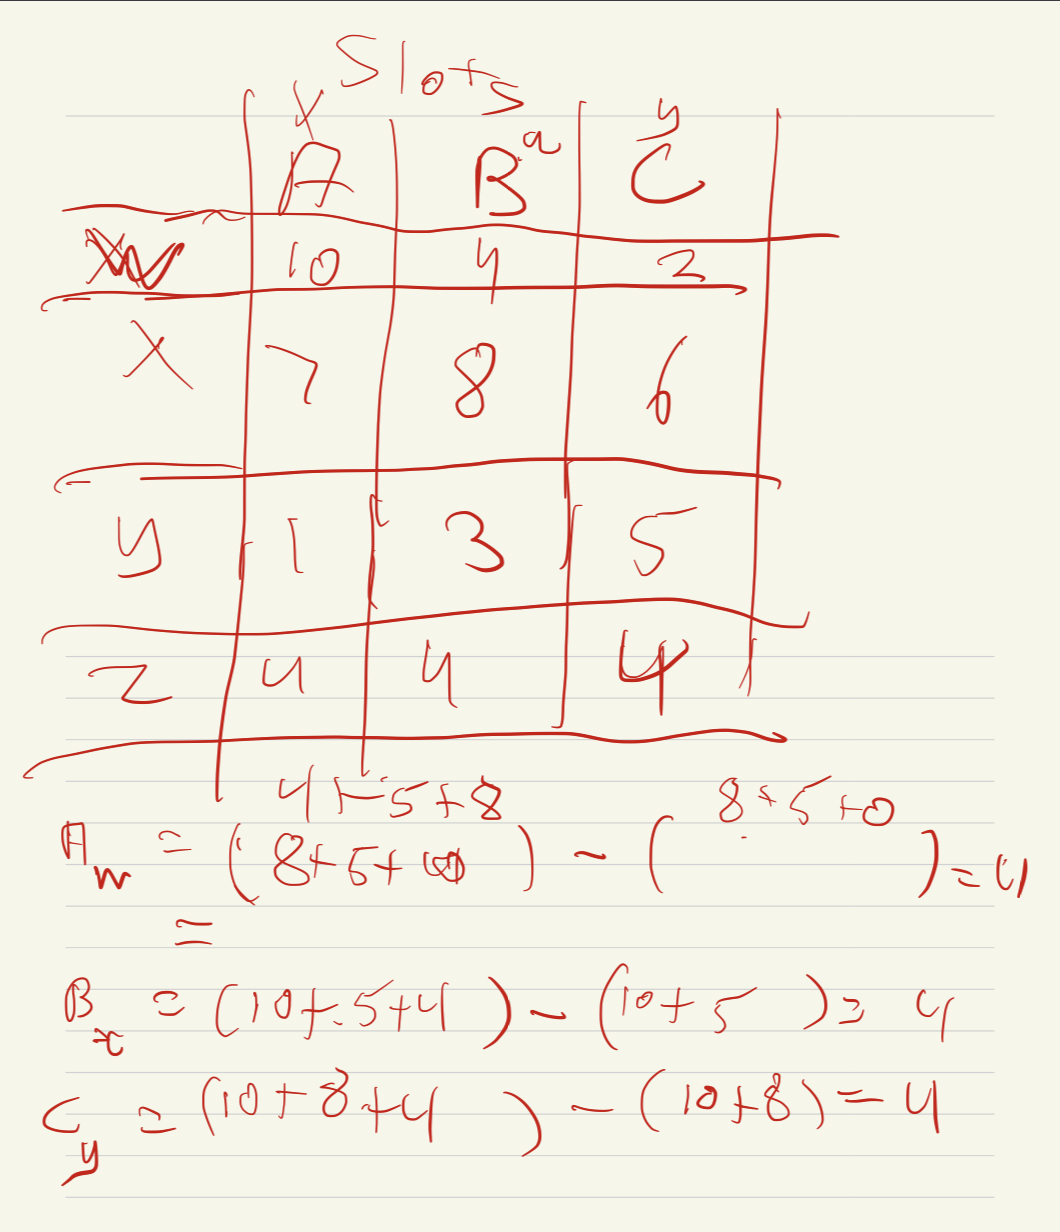 Slots
x a y
A B C
W 10 4 2
X 7 8 6
y 1 3 5
Z 4 4 4
4+5+8 8+5+0
A = ( 8+5+ ) - ( ) = 4
=
B = (10+5+4) - (10+5) = 4
C y = (10+8+4) - (10+8) = 4